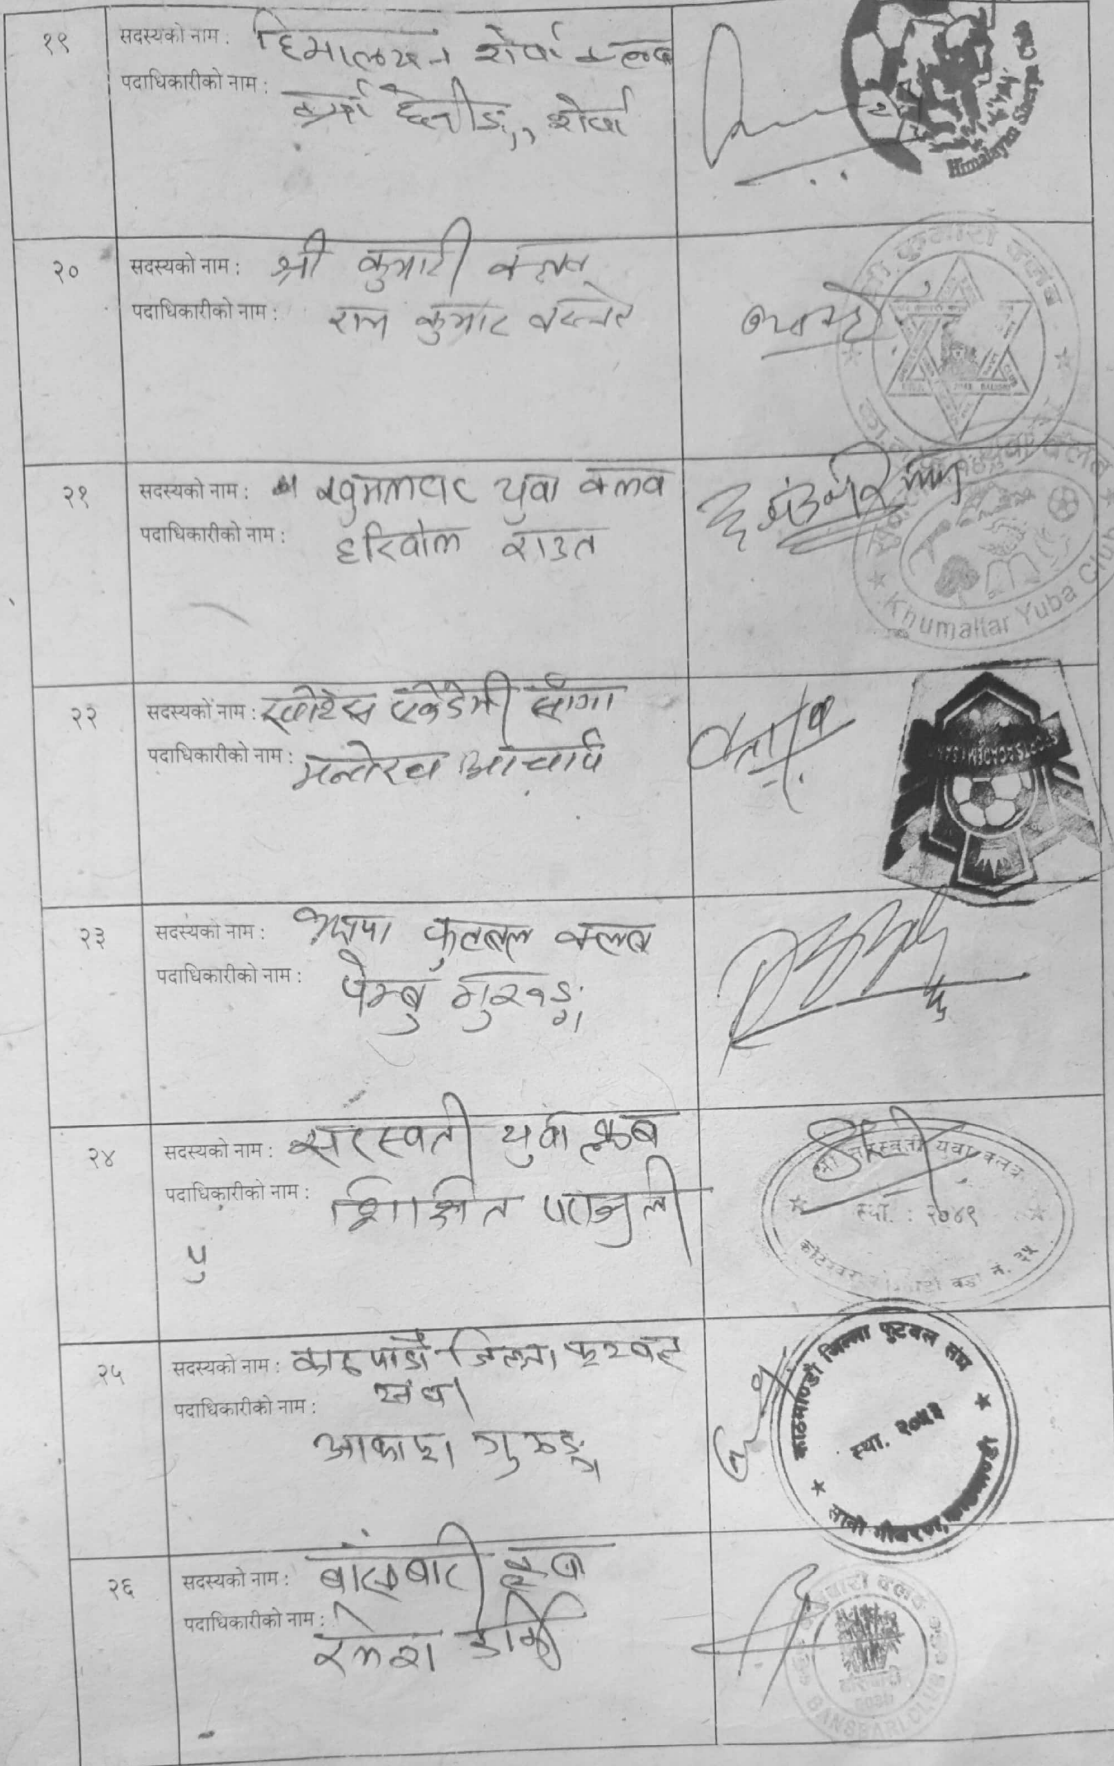 १९
सदस्यको नाम : हिमालयन शेर्पा क्लब
पदाधिकारीको नाम :
कर्मा छिरीङ शेर्पा
Himalayan Sherpa Club
२०
सदस्यको नाम : श्री कुमारी क्लब
पदाधिकारीको नाम : राम कुमार बस्नेत
श्री कुमारी क्लब
२१
सदस्यको नाम : खुमलटार युवा क्लव
पदाधिकारीको नाम : हरिबोल राउत
युवा क्लब
Khumaltar Yuba Club
२२
सदस्यको नाम : स्पोर्टस एकेडेमी साँगा
पदाधिकारीको नाम : आचार्य
२३
सदस्यको नाम : फुटबल क्लब
पदाधिकारीको नाम :
पेम्बु गुरुङ
२४
सदस्यको नाम : सरस्वती युवा क्लब
पदाधिकारीको नाम : शिक्षित पराजुली
पु
श्री सरस्वती युवा क्लब
स्था. : २०४९
वडा नं. ३५
२५
सदस्यको नाम : काठमाडौं जिल्ला फुटबल
संघ
पदाधिकारीको नाम :
आकाश गुरुङ
काठमाण्डौ जिल्ला फुटबल संघ
स्था. २०५३
२६
सदस्यको नाम : बाँसबारी क्लब
पदाधिकारीको नाम :
रमेश
बाँसबारी क्लब
BANSBARI CLUB